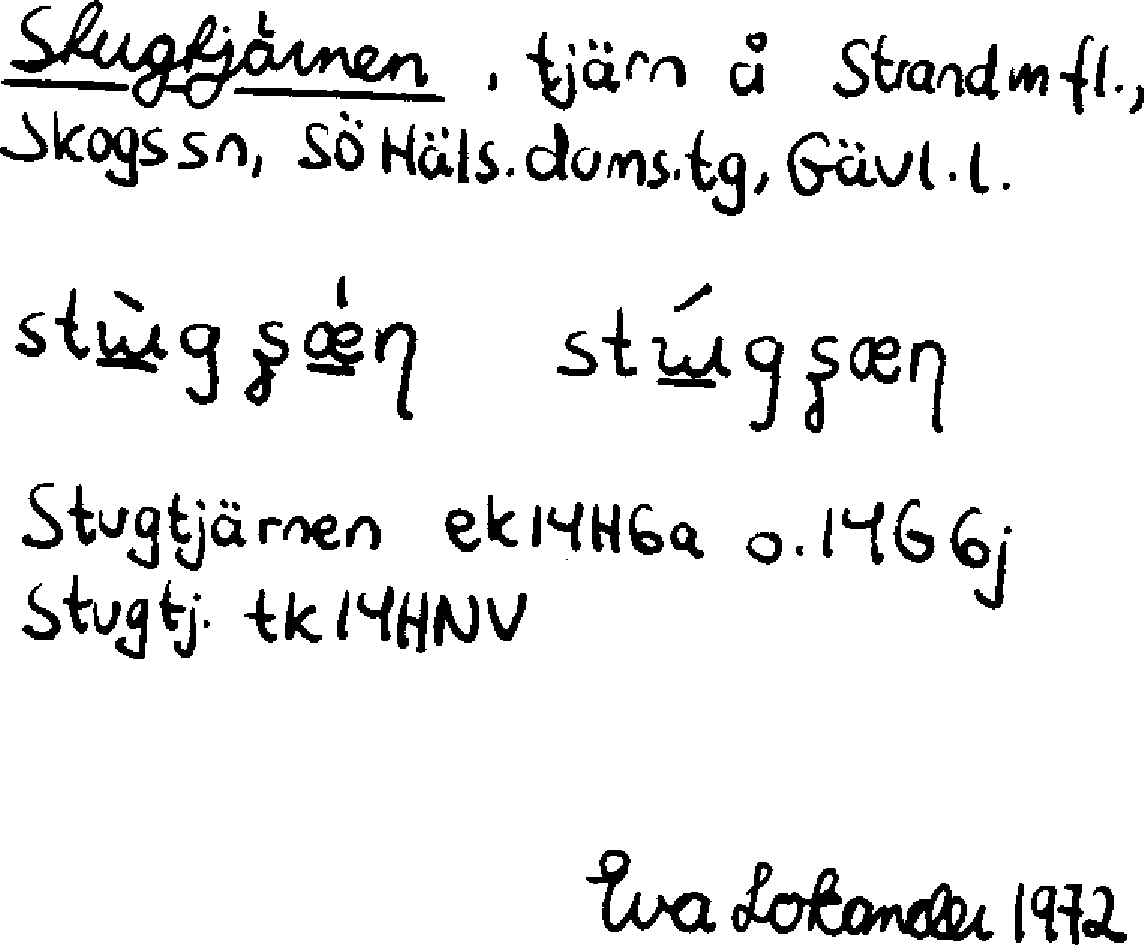 Stugtjärnen, tjärn å Strand m fl.,
Skogs sn, Sö Häls. doms.tg, Gävl. l.
Stugtjärnen ek 14H6a o. 14G6j
Stugtj. tk 14HNV
Eva 1972